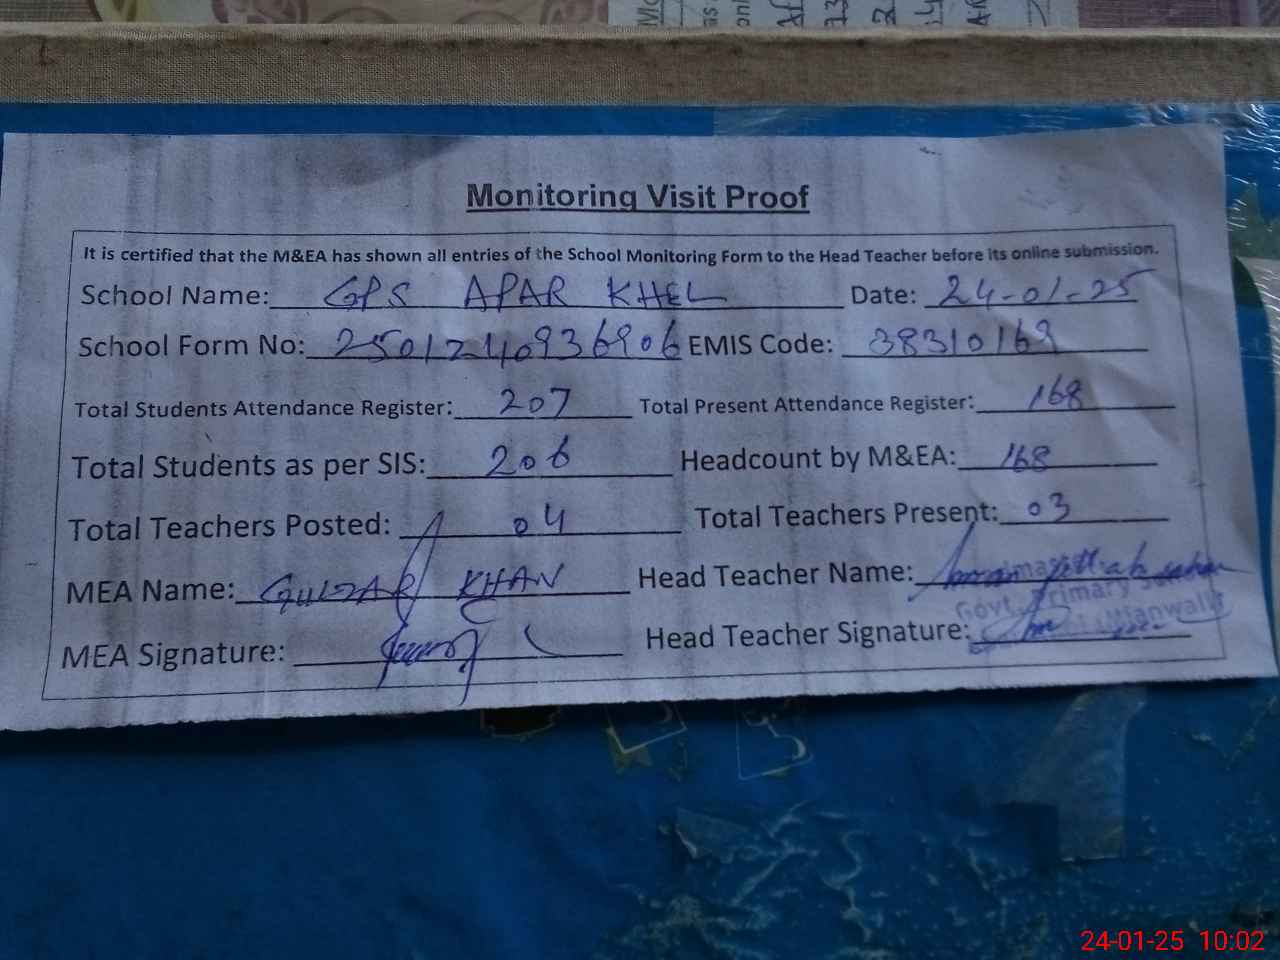 Monitoring Visit Proof
It is certified that the M&EA has shown all entries of the School Monitoring Form to the Head Teacher before its online submission.
School Name: GPS APAR KHEL Date: 24-01-25
School Form No: 2501240936906 EMIS Code: 38310169
Total Students Attendance Register: 207 Total Present Attendance Register: 168
Total Students as per SIS: 206 Headcount by M&EA: 168
Total Teachers Posted: 04 Total Teachers Present: 03
MEA Name: GULZAR KHAN Head Teacher Name:
Govt. Primary
MEA Signature: Head Teacher Signature:
24-01-25 10:02